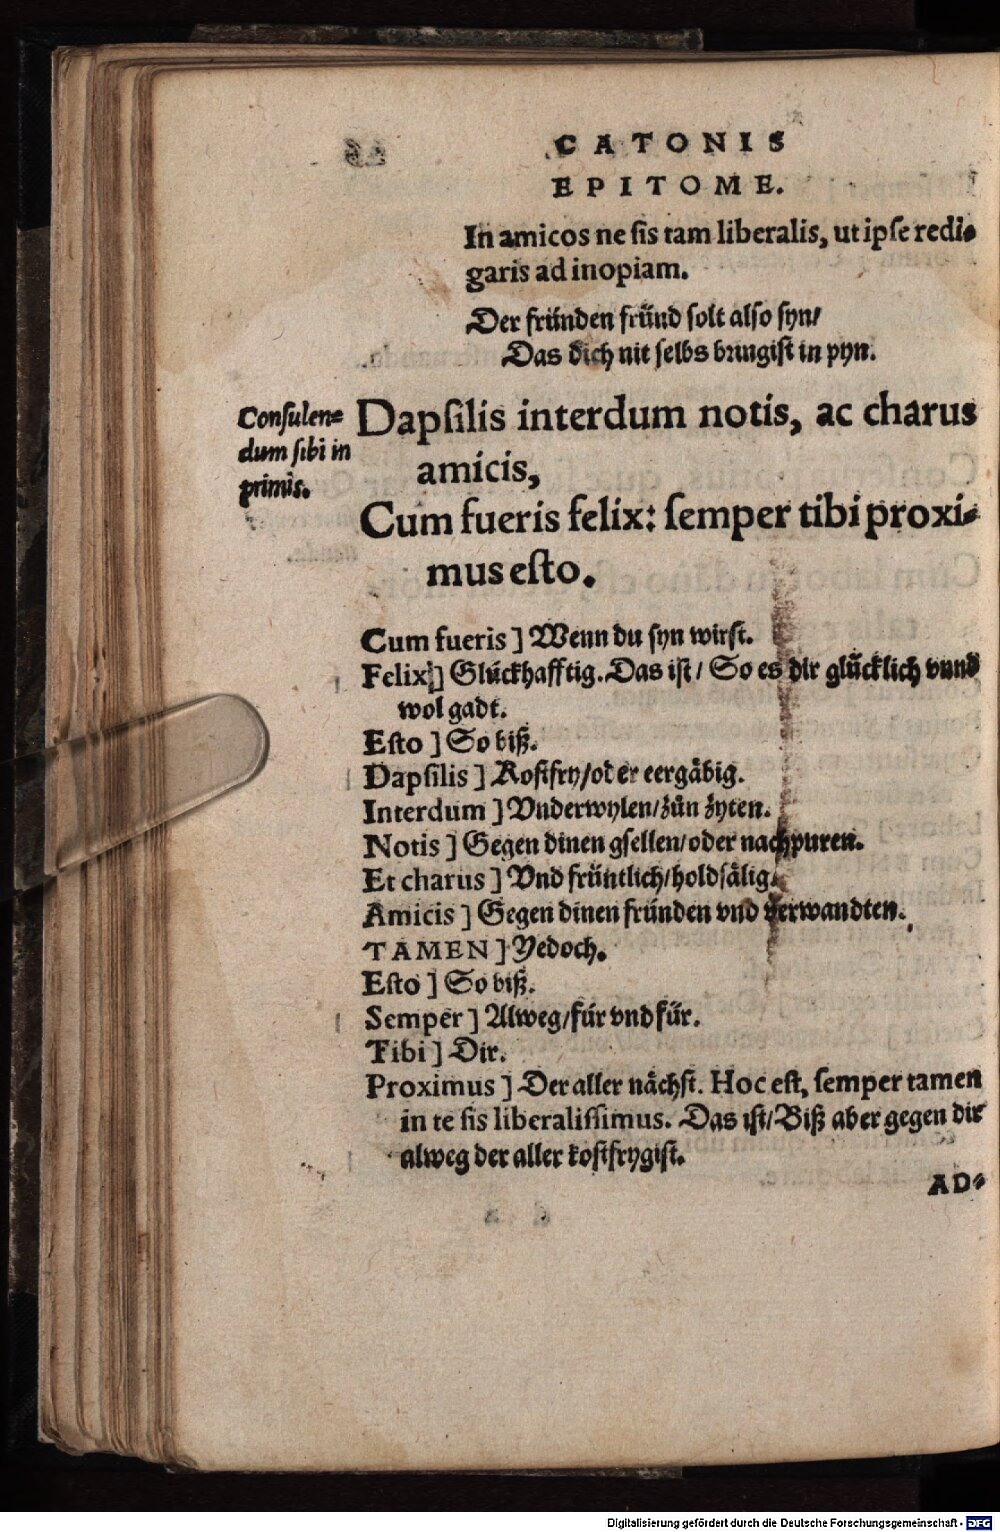 CATONIS
EPITOME.
In amicos ne sis tam liberalis, ut ipſe redi-
garis ad inopiam.
Der fründen fründ ſolt alſo ſyn/
Das dich nit ſelbs bringiſt in pyn.
Conſulen=
dum ſibi in
primis.
Dapſilis interdum notis, ac charus
amicis,
Cum fueris felix: ſemper tibi proxi-
mus eſto.
Cum fueris ] Wenn du ſyn wirſt.
Felix ] Glückhafftig. Das iſt/ So es dir glücklich vnnd
wol gadt.
Eſto ] So biß.
Dapſilis ] Koſtfry/oder eergäbig.
Interdum ] Vnderwylen/zůn zyten.
Notis ] Gegen dinen gſellen/oder nachpuren.
Et charus ] Vnd früntlich/holdſälig.
Amicis ] Gegen dinen fründen vnd verwandten.
TAMEN ] Yedoch.
Eſto ] So biß.
Semper ] Alweg/für vnd für.
Tibi ] Dir.
Proximus ] Der aller nächſt. Hoc eſt, ſemper tamen
in te sis liberaliſſimus. Das iſt/Biß aber gegen dir
alweg der aller koſtfrygiſt.
AD-
Digitalisierung gefördert durch die Deutsche Forschungsgemeinschaft - DFG